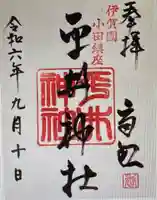 奉拝
伊賀國
小田鎮座
平井神社
令和六年九月十日